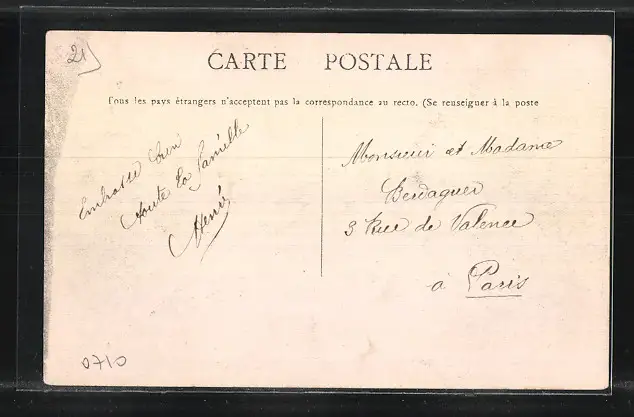 21)
CARTE POSTALE
Tous les pays étrangers n'acceptent pas la correspondance au recto. (Se renseigner à la poste
Embrasse bien
toute la famille
Henri
Monsieur et Madame
Berdaguer
3 Rue de Valence
à Paris
0710